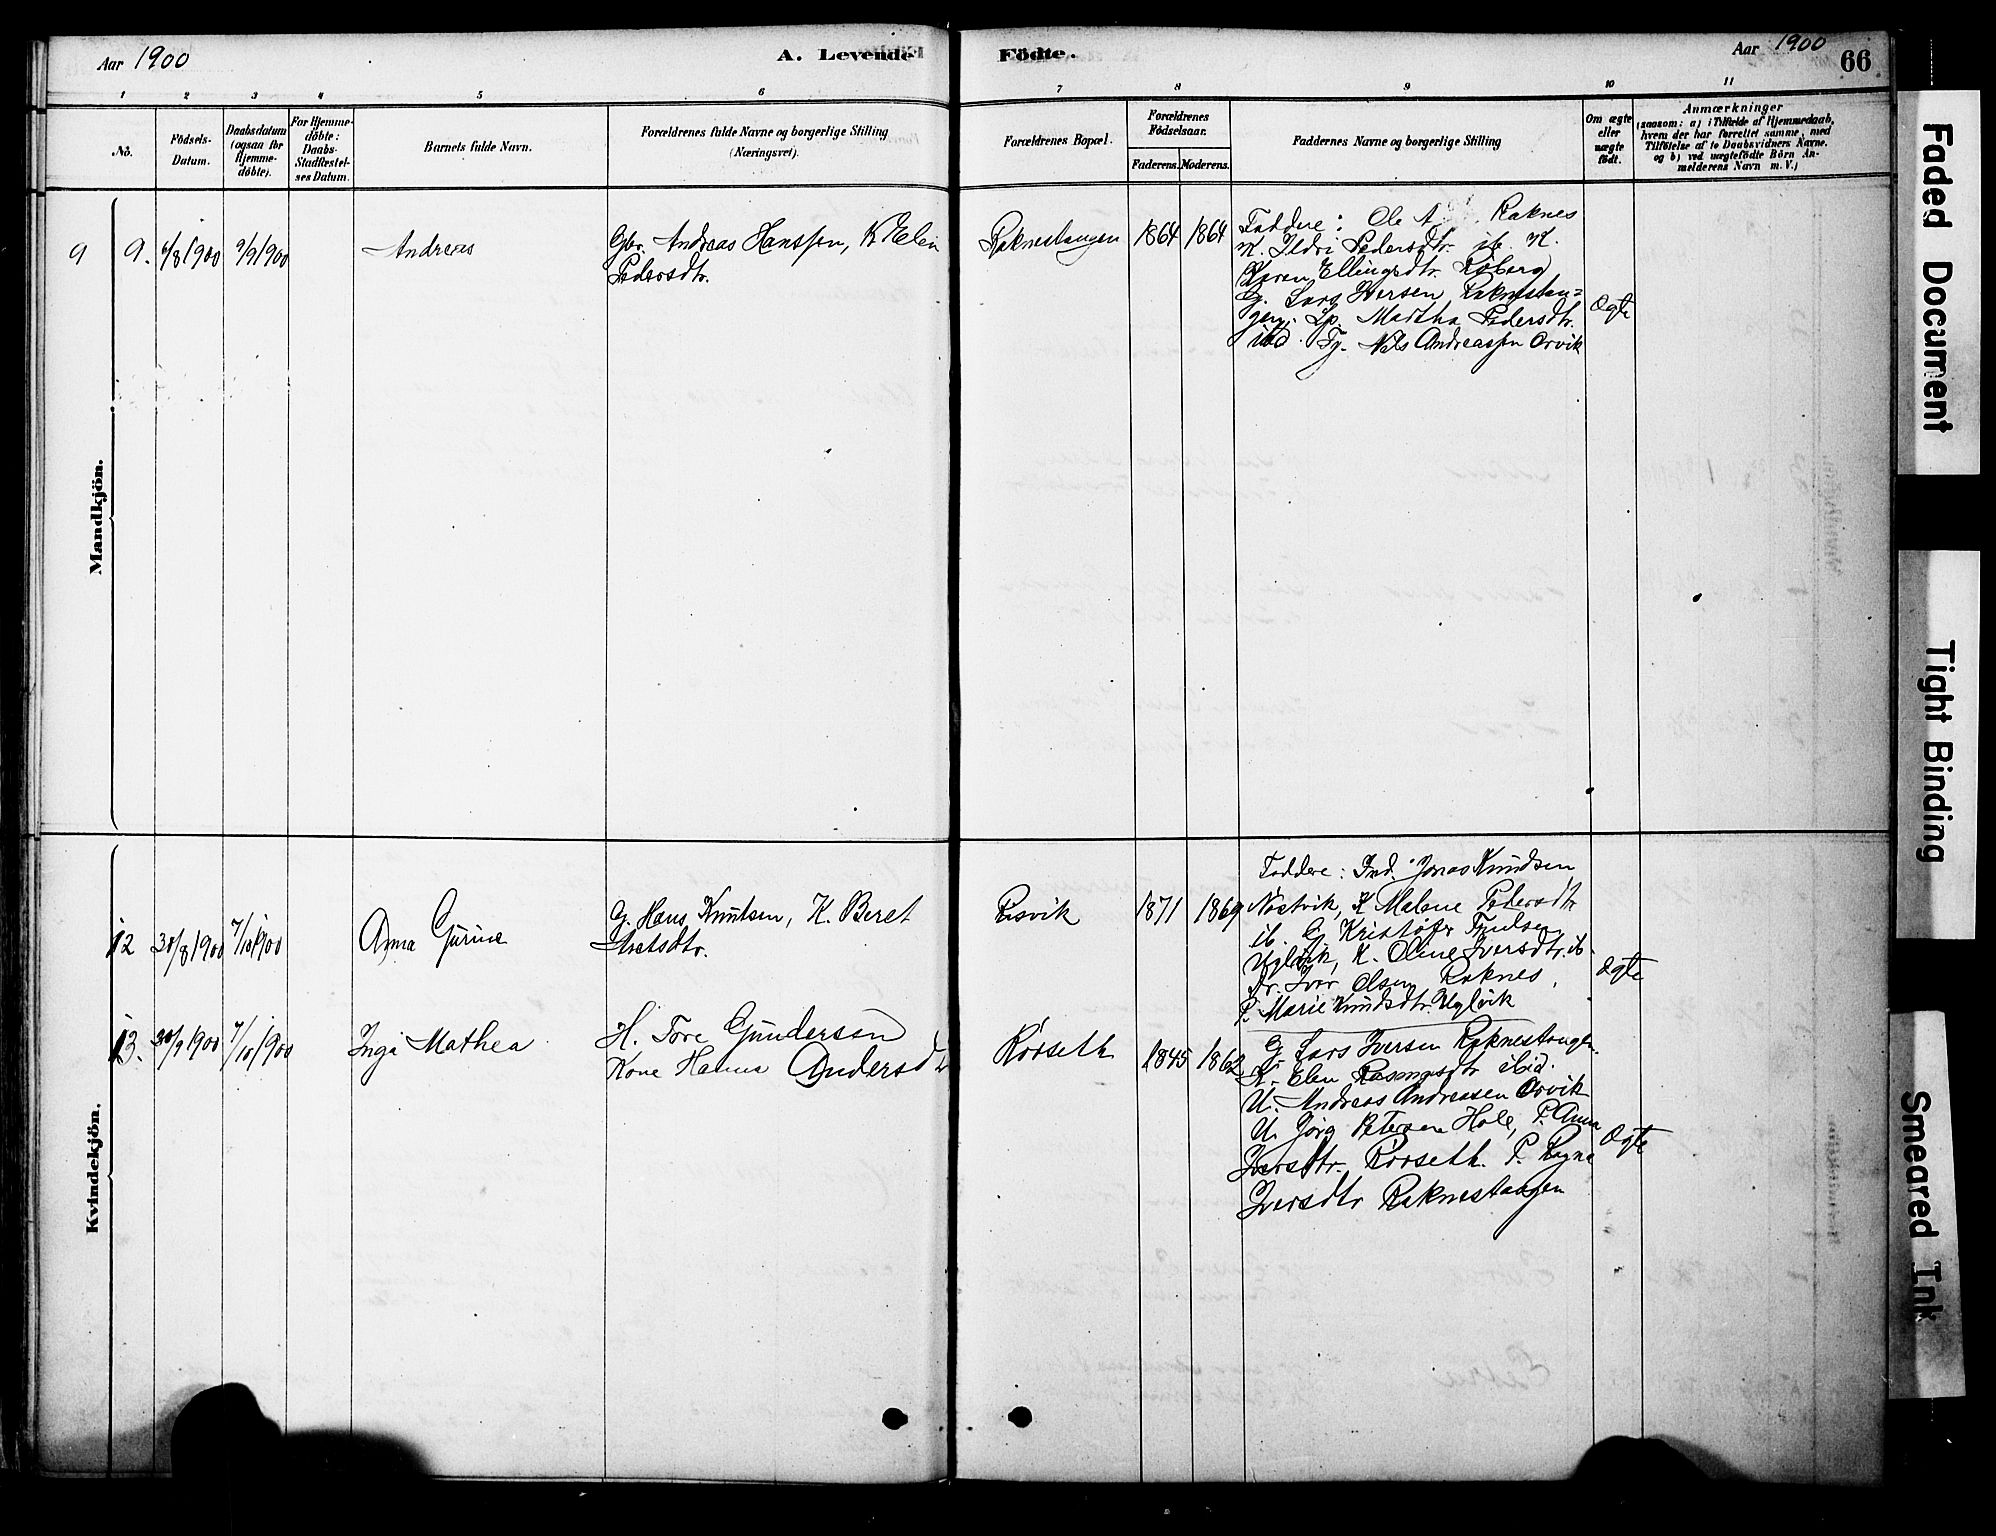 Aar 1900
A. Levende Födte.
Aar 1900
66
1 2 3 4 5 6 7 8 9 10 11
No.
Födsels-
Datum.
Daabsdatum
(ogsaa for
Hjemme-
döbte).
For Hjemme-
döbte:
Daabs-
Stadfæstel-
ses Datum.
Barnets fulde Navn.
Forældrenes fulde Navne og borgerlige Stilling
(Næringsvei).
Forældrenes Bopæl.
Forældrenes
Födselsaar.
Faderens. Moderens.
Faddernes Navne og borgerlige Stilling
Om ægte
eller
uægte
födt.
Anmærkninger
(saasom: a) i Tilfælde af Hjemmedaab,
hvem der har forrettet samme, med
Tilföielse af to Daabsvidners Navne.
og b) ved uægtefödte Börn An-
melderens Navn m. V.)
Mandkjön.
9 9. 6/8 1900 9/9 1900
Andreas
Gbr. Andreas Hanssen, K Elen
Pedersdtr.
Raknestangen
1864 1864
Faddere: Ole A Raknes
K. Ildri Pedersdtr. ib. K.
Karen Ellingsdtr. Röberg
G. Lars Iversen Raknestan=
gen. Sp. Martha Pedersdtr.
ibd. Tg. Nils Andreassen Orvik
Ægte
Kvindekjön.
12 30/8 1900 7/10 1900
Anna Gurine
G. Hans Knutsen, K. Beret
Risvik
1871 1869
Faddere: Ind. Jonas Knudsen
Nöstvik, K Malene Pedersdtr
ib. G Kristofer
Uglvik, K. Oline Iversdtr. ib.
Dr. Iver Olsen Raknes,
P. Marie Knudsdtr. Uglvik
Ægte
13. 30/9 1900 7/10 1900
Inga Mathea
H. Tore Gundersen
Kone Hanna Andersdtr
Rörseth
1845 1862
G Lars Iversen Raknestangen.
K. Elen Rasmusdtr ibid.
U. Andreas Andreasen Orvik
U. Jörg Petersen Hole, P. Anna
Iversdtr. Rörseth. P. Ragna
Iversdtr Raknestangen
Ægte
Faded Document
Tight Binding
Smeared Ink